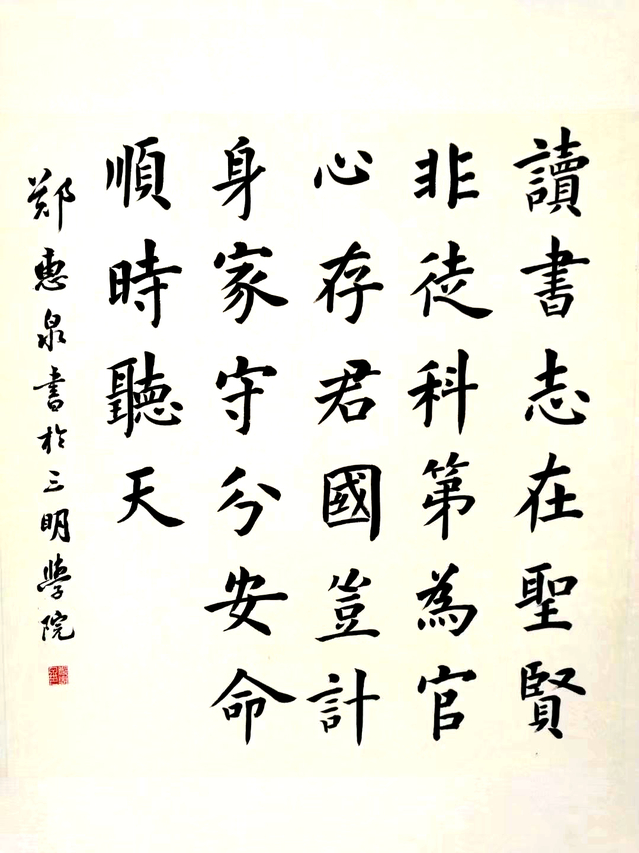 讀書志在聖賢
非徒科第為官
心存君國豈計
身家守分安命
順時聽天
郑惠泉書於三明學院